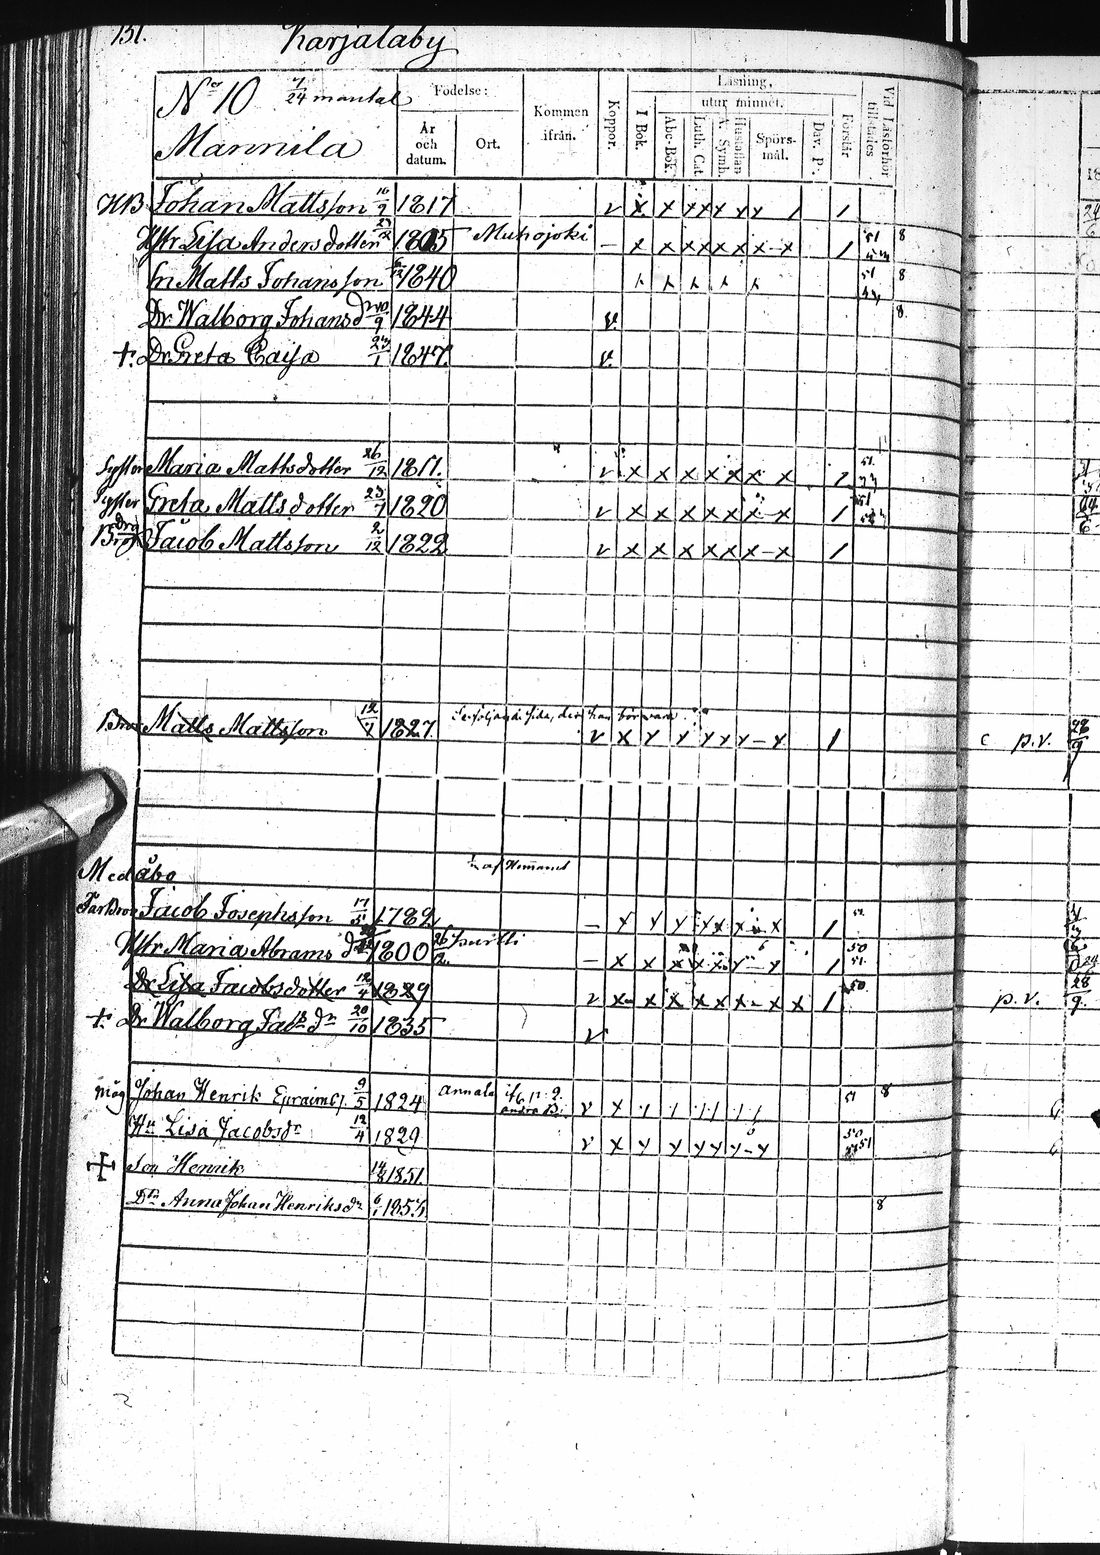 151. Karjalaby
No 10 7/24 mantal
Mannila
Födelse:
År och datum.
Ort.
Kommen ifrån.
Koppor.
Läsning,
I Bok.
utur minnet.
Abc-Bok.
Luth. Cat.
A. Symb.
Hustaflan
Spörsmål.
Dav. P.
Förstår
Vid Läsförhör tillstädes
HB Johan Mattsson 16/9 1817 v x x x x x x x / /
Hstr Lisa Andersdotter 1805 Muhojoki – x x x x x x x – x / 51 8
Sn Matts Johansson 1840 51 8
Dr Walborg Johansdr 1844 v 8
+ Dr Greta Caisa 23/1 1847 v
Syster Maria Mattsdotter 26/12 1811. v x x x x x x x / 51
Syster Greta Mattsdotter 23/7 1820 v x x x x x x – x / 51
Bror Jacob Mattsson 2/12 1822 v x x x x x x – x /
Bror Matts Mattsson 12/1 1827 Se följande sida, der han bör vara. v x y y y y y – y / c p.v. 28/9
Medåbo af Hemmanet
Farbror Jacob Josephsson 1782 – x y y x x x – x / 51
Hstr Maria Abrams dr 1800 – x x x x x y – y / 50 51
Dr Lisa Jacobsdotter 12/4 1829 v x x x x x x – x x / 50 p.v. 28/9
+ Dr Walborg Jac. dr 20/10 1835 v
måg Johan Henrik Epraims. 9/5 1824 Annala v x 51 8
Hu Lisa Jacobsdr 12/4 1829 v x y y y y y – y 50 51
+ Son Henrik 1851
Dtr Anna Johan Henriksdr 1853 8